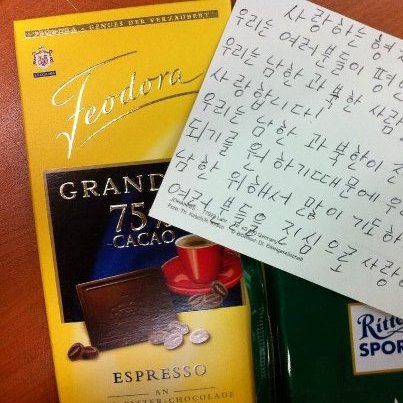 FEODORA - GENUSS DER VERZAUBERT
Feodora
GRAND
75%
CACAO
ESPRESSO
AN
BITTER-CHOCOLADE
사랑하는 형
우리는 여러분들이 평
우리는 남한과 북한 사람
사랑합니다!
우리는 남한과 북한이
되기를 원하기때문에 우
남한 위해서 많이 기도하
여러분들을 진심으로 사랑
Ritter
SPOR